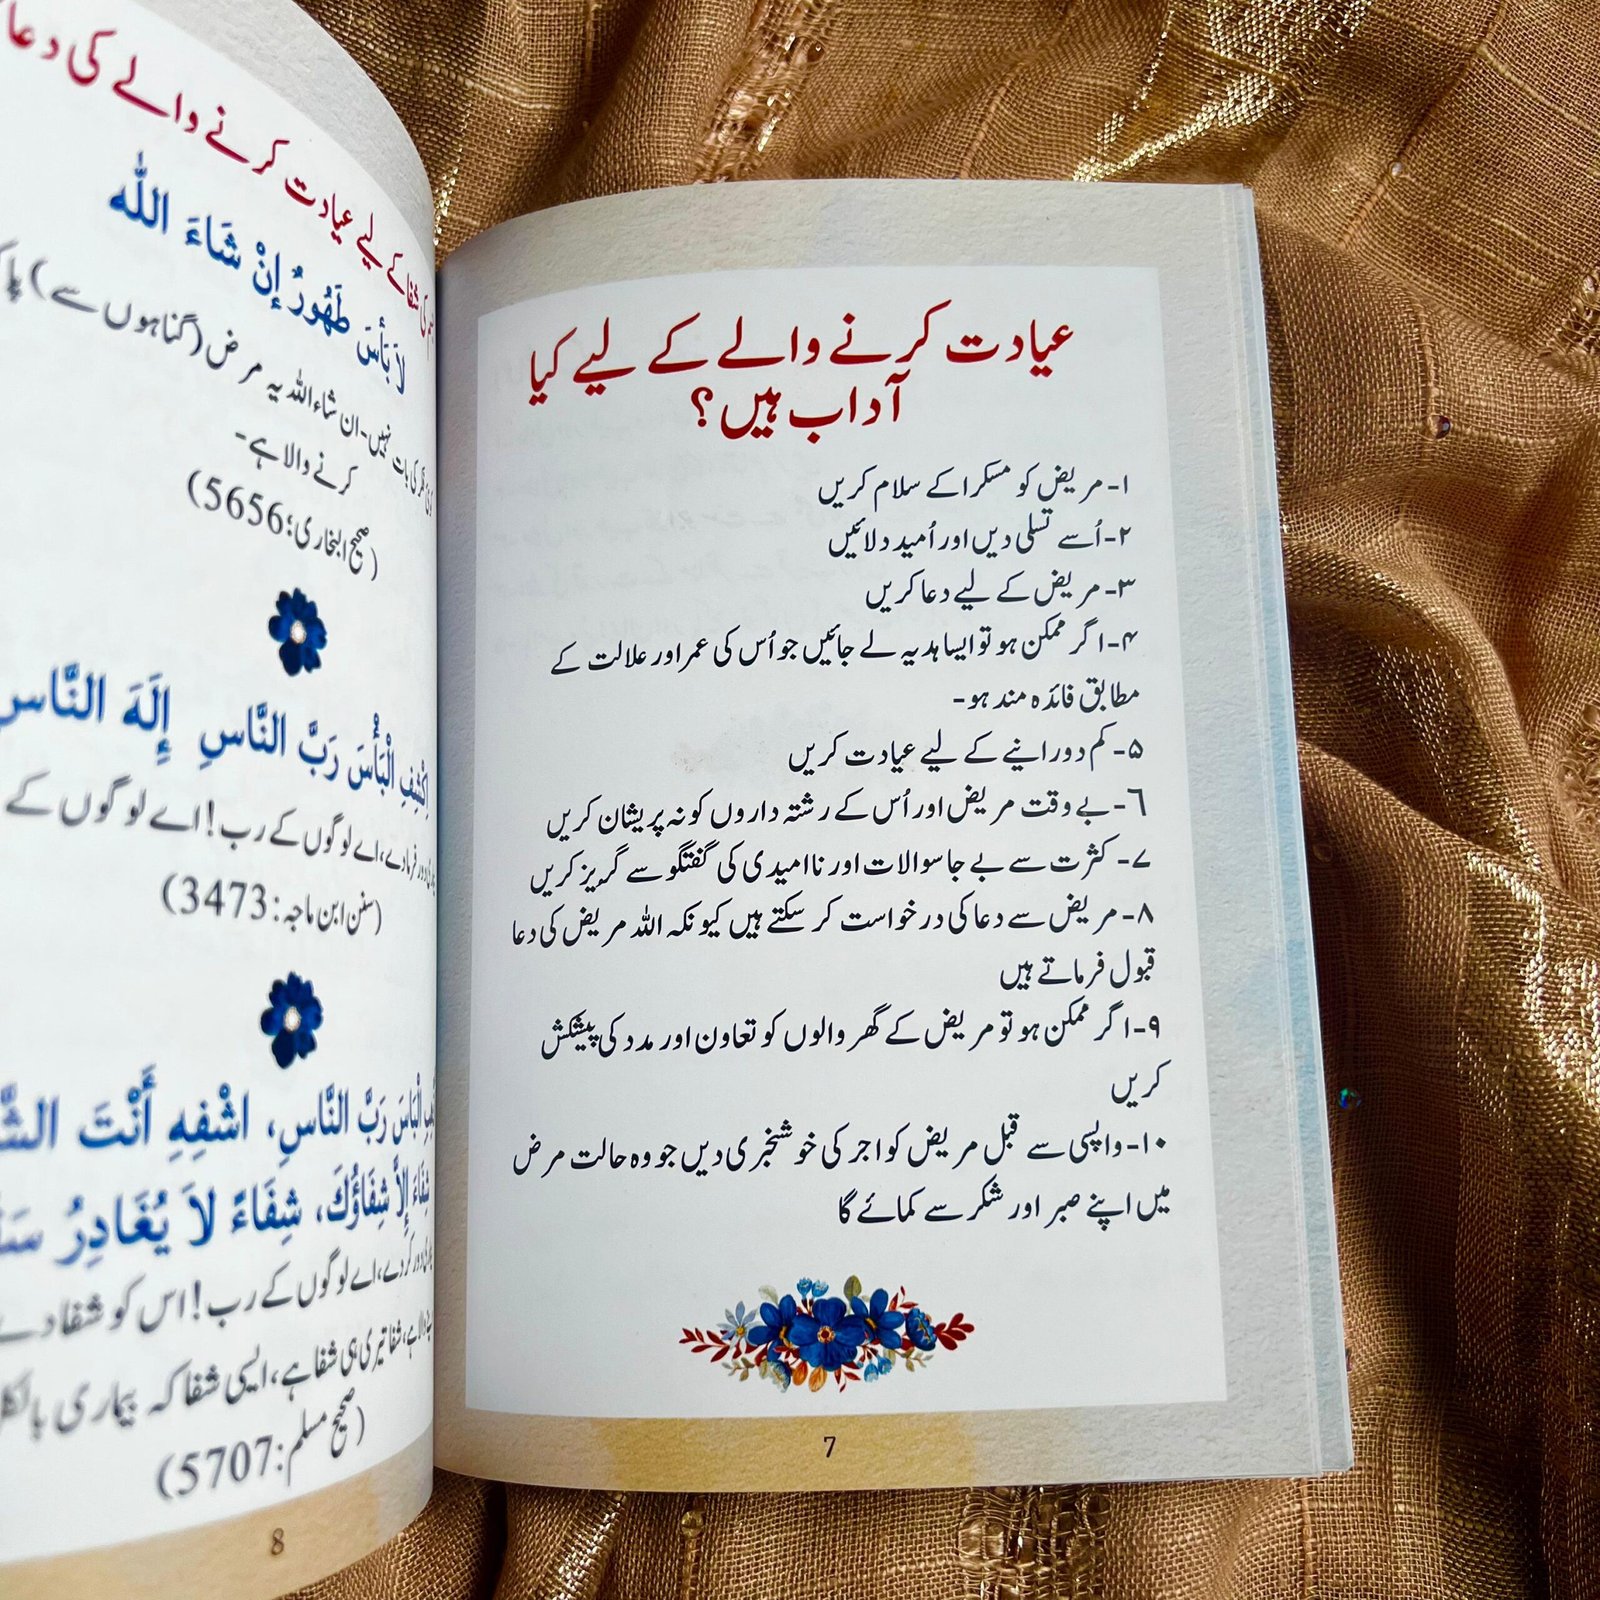 عیادت کرنے والے کے لیے کیا
آداب ہیں؟
۱- مریض کو مسکرا کے سلام کریں
۲- اُسے تسلی دیں اور اُمید دلائیں
۳- مریض کے لیے دعا کریں
۴- اگر ممکن ہو تو ایسا ہدیہ لے جائیں جو اُس کی عمر اور علالت کے
مطابق فائدہ مند ہو-
۵- کم دورانیے کے لیے عیادت کریں
۶- بے وقت مریض اور اُس کے رشتہ داروں کو نہ پریشان کریں
۷- کثرت سے بے جا سوالات اور ناامیدی کی گفتگو سے گریز کریں
۸- مریض سے دعا کی درخواست کر سکتے ہیں کیونکہ اللہ مریض کی دعا
قبول فرماتے ہیں
۹- اگر ممکن ہو تو مریض کے گھر والوں کو تعاون اور مدد کی پیشکش
کریں
۱۰- واپسی سے قبل مریض کو اجر کی خوشخبری دیں جو وہ حالت مرض
میں اپنے صبر اور شکر سے کمائے گا
7
کی شفا کے لیے عیادت کرنے والے کی دعا
لَا بَأْسَ طَهُورٌ إِنْ شَاءَ اللّٰه
کی بات نہیں-ان شاء اللہ یہ مرض (گناہوں سے)
کرنے والا ہے-
(صحیح البخاری؛5656)
اِكْشِفِ الْبَأْسَ رَبَّ النَّاسِ إِلَهَ النَّاسِ
فرما دے، اے لوگوں کے رب! اے لوگوں کے
(سنن ابن ماجہ: 3473)
الْبَاسَ رَبَّ النَّاسِ، اشْفِهِ أَنْتَ
شِفَاءَ إِلَّا شِفَاؤُكَ، شِفَاءً لَا يُغَادِرُ
دور کر دے، اے لوگوں کے رب! اس کو شفا دے
شفا تیری ہی شفا ہے، ایسی شفا کہ بیماری بالکل
(صحیح مسلم: 5707)
8